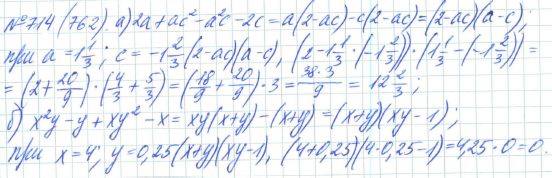 №714 (762). а) 2a + ac² - a²c - 2c = a(2-ac) - c(2-ac) = (2-ac)(a-c),
при a = 1 1/3; c = -1 2/3 (2-ac)(a-c), (2 - 1 1/3 · (-1 2/3)) · (1 1/3 - (-1 2/3)) =
= (2 + 20/9) · (4/3 + 5/3) = (18/9 + 20/9) · 3 = 38·3/9 = 12 2/3;
б) x²y - y + xy² - x = xy(x+y) - (x+y) = (x+y)(xy-1);
при x = 4; y = 0,25 (x+y)(xy-1), (4+0,25)(4·0,25-1) = 4,25·0 = 0.